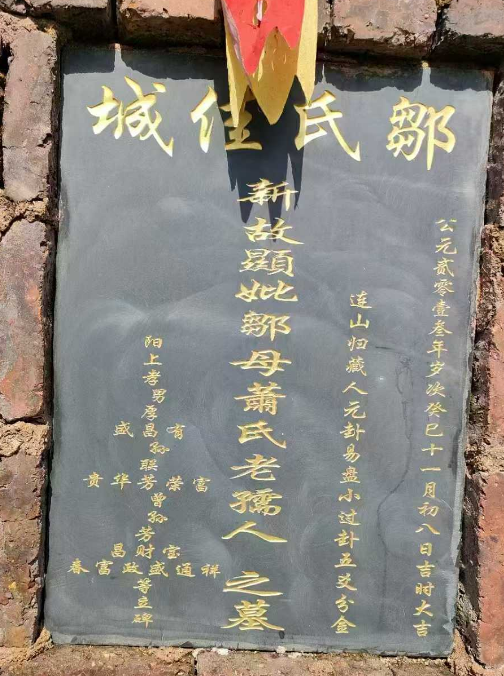 鄒氏佳城
公元贰零壹叁年岁次癸巳十一月初八日吉时大吉
连山归藏人元卦易盘小过卦五爻分金
新故顯妣鄒母蕭氏老孺人之墓
阳上孝男厚
有昌盛
孙联
富荣芳华贵
曾孙芳
宝财昌
祥通盛政富春
等立碑